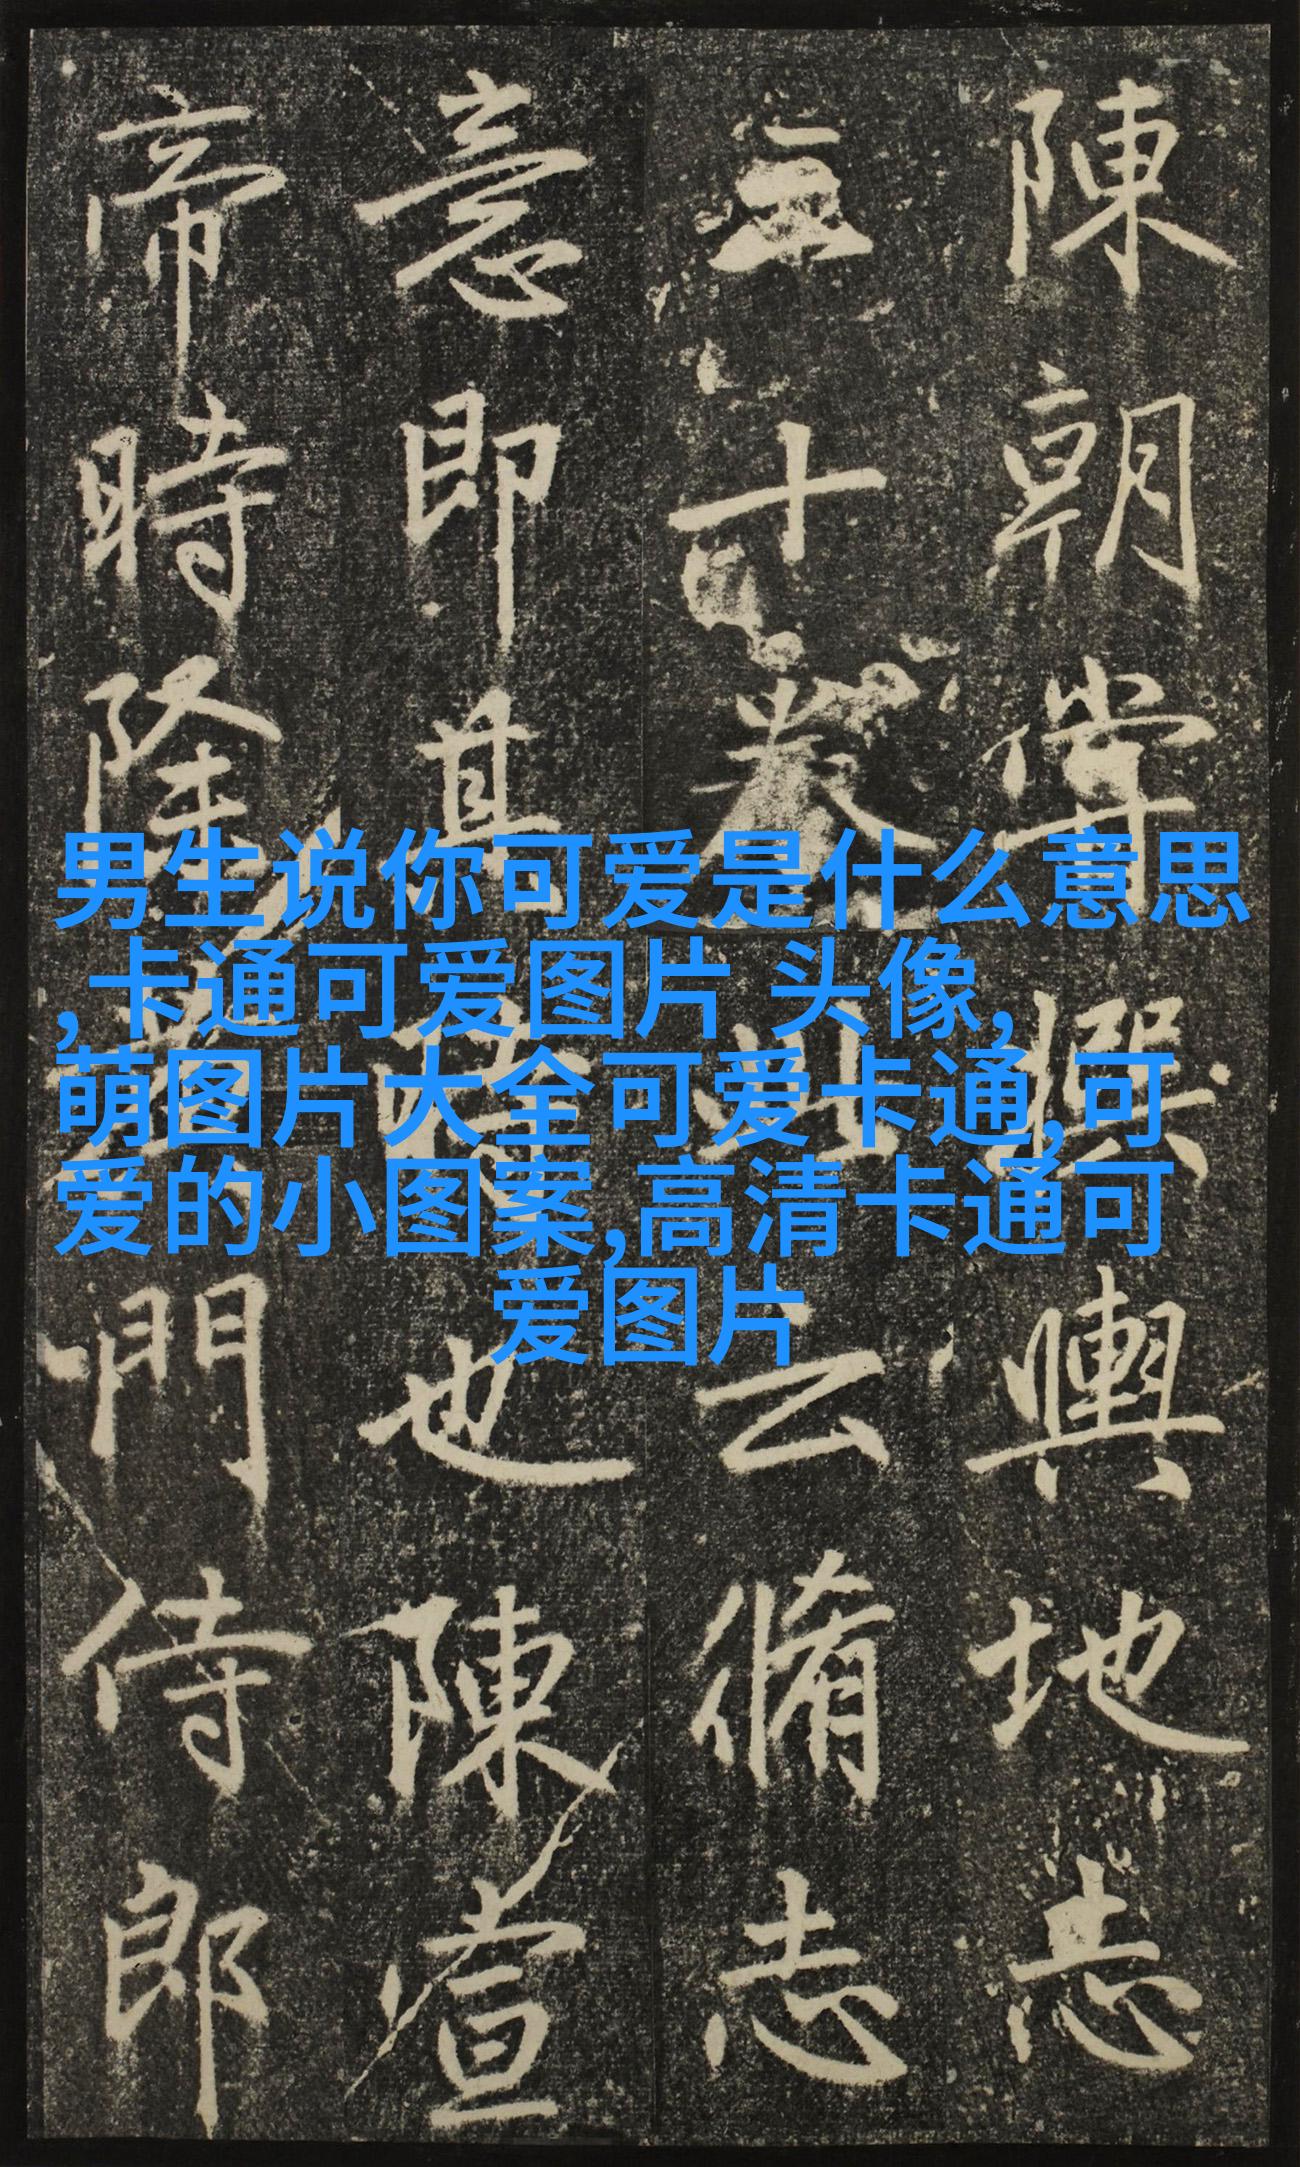 男生说你可爱是什么意思
,卡通可爱图片 头像,
萌图片大全可爱卡通,可
爱的小图案,高清卡通可
爱图片
陳朝嘗撰輿地志
十卷此云脩志
意即其也陳宣
帝時陸黃門侍郎